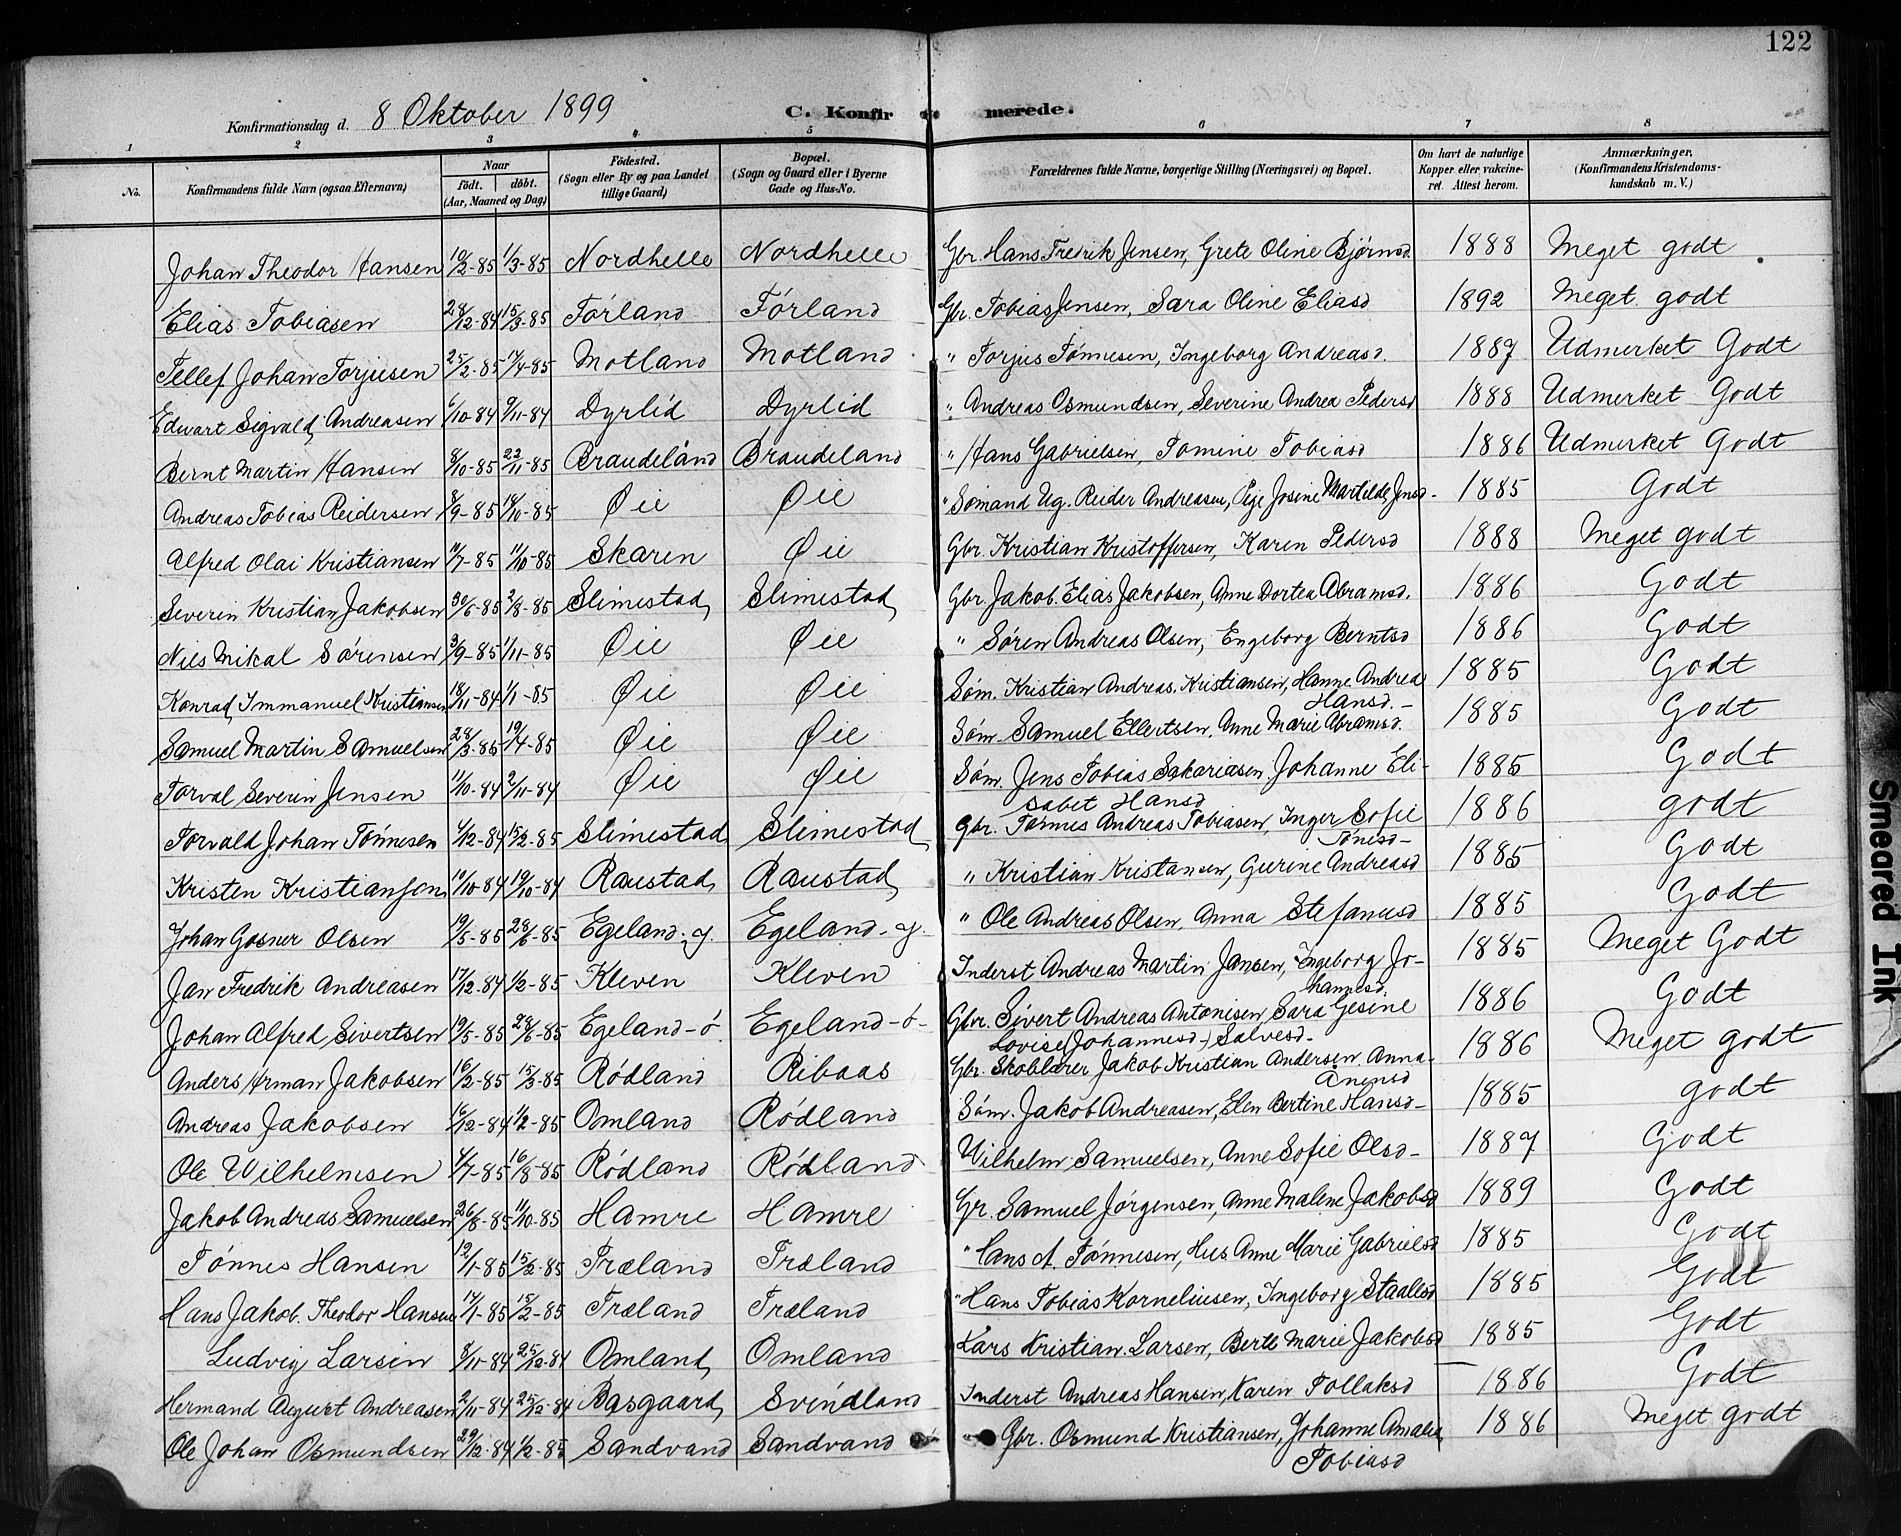 122
Konfirmationsdag d. 8 Oktober 1899 C. Konfirmerede.
1 2 3 4 5 6 7 8
No. Konfirmandens fulde Navn (ogsaa Efternavn) Naar født. døbt. (Aar, Maaned og Dag) Födested. (Sogn eller By og paa Landet tillige Gaard) Bopæl. (Sogn og Gaard eller i Byerne Gade og Hus-No. Forældrenes fulde Navne, borgerlige Stilling (Næringsvei) og Bopæl. Om havt de naturlige Kopper eller vakcineret. Attest herom. Anmærkninger. (Konfirmandens Kristendomskundskab m. V.)
Johan Theodor Hansen 10/2-85 1/3-85 Nordhelle Nordhelle Gbr. Hans Fredrik Jensen, Grete Oline Bjørnsd. 1888 Meget godt
Elias Tobiasen 28/12-84 15/3-85 Førland Førland Gbr. Tobias Jensen, Sara Oline Eliasd 1892 Meget godt
Tellef Johan Torjusen 25/2-85 17/4-85 Motland Motland " Torjus Tønnesen, Ingeborg Andreasd. 1887 Udmerket Godt
Edvart Sigvald Andreasen 6/10-84 9/11-84 Dyrlid Dyrlid " Andreas Osmundsen, Severine Andrea Pedersd 1888 Udmerket Godt
Bernt Martin Hansen 8/10-85 22/11-85 Braudeland Braudeland " Hans Gabrielsen, Tomine Tobiasd 1886 Udmerket Godt
Andreas Tobias Reidersen 8/9-85 18/10-85 Øie Øie " Sømand Ug. Reider Andreasen, Pige Josine Martilde Jensd- 1885 Godt
Alfred Olai Kristiansen 11/7-85 11/10-85 Skaren Øie Gbr. Kristian Kristoffersen, Karen Pedersd 1888 Meget godt
Severin Kristian Jakobsen 30/6-85 2/8-85 Slimestad Slimestad Gbr. Jakob Elias Jakobsen, Anne Dortea Abramsd. 1886 Godt
Nils Mikal Sørensen 3/9-85 1/11-85 Øie Øie " Søren Andreas Olsen, Engeborg Berntsd 1886 Godt
Konrad Immanuel Kristiansen 18/11-84 1/1-85 Øie Øie Søm. Kristian Andreas Kristiansen, Hanne Andrea Hansd.- 1885 Godt
Samuel Martin Samuelsen 28/3-85 19/4-85 Øie Øie Søm. Samuel Ellertsen, Anne Marie Abramsd. 1885 Godt
Torval Severin Jensen 11/10-84 2/11-84 Øie Øie Søm. Jens Tobias Sakariasen, Johanne Eli-
sabet Hansd 1885 Godt
Torvald Johan Tønnesen 4/12-84 15/2-85 Slimestad Slimestad Gbr. Tønnes Andreas Tobiasen, Inger Sofie Tønesd- 1886 godt
Kristen Kristiansen 10/10-84 19/10-84 Raustad Raustad " Kristian Kristansen, Gurine Andreasd 1885 Godt
Johan Gosner Olsen 19/5-85 28/6-85 Egeland-y. Egeland-y. " Ole Andreas Olsen, Anna Stefanusd 1885 Godt
Jan Fredrik Andreasen 17/12-84 1/2-85 Kleven Kleven Inderst Andreas Martin Jansen, Ingeborg Jo-
hannesd. 1885 Meget Godt
Johan Alfred Sivertsen 19/5-85 28/6-85 Egeland-ø. Egeland-ø- Gbr. Sivert Andreas Antonisen, Sara Gesine
Lovise (Johannesd-) Salvesd- 1886 Godt
Anders Herman Jakobsen 16/2-85 15/3-85 Rødland Ribaas Gbr. Skoblærer Jakob Kristian Andersen, Anna Anensd 1886 Meget godt
Andreas Jakobsen 16/12-84 1/2-85 Omland Rødland Søm. Jakob Andreasen, Elen Bertine Hansd- 1885 godt
Ole Wilhelmsen 4/7-85 16/8-85 Rødland Rødland Wilhelm Samuelsen, Anne Sofie Olsd- 1887 Godt
Jakob Andreas Samuelsen 26/8-85 11/10-85 Hamre Hamre Gr. Samuel Jørgensen, Anne Malene Jakobsd 1889 Godt
Tønnes Hansen 12/1-85 15/2-85 Træland Træland " Hans A. Tønnesen, Hus. Anne Marie Gabrielsd 1885 Godt
Hans Jakob Theodor Hansen 17/1-85 15/2-85 Træland Træland " Hans Tobias Korneliusen, Ingeborg Staallesd 1885 Godt
Ludvig Larsen 8/11-84 25/12-84 Omland Omland Lars Kristian Larsen, Berte Marie Jakobsd 1885 Godt
Hermand August Andreasen 2/11-84 25/12-84 Basgaard Svindland Inderst Andreas Hansen, Karen Tollaksd 1886 Godt
Ole Johan Osmundsen 29/12-84 1/2-85 Sandvand Sandvand Gbr. Osmund Kristiansen, Johanne Amalie
Tobiasd 1886 Meget godt
Smeared Ink